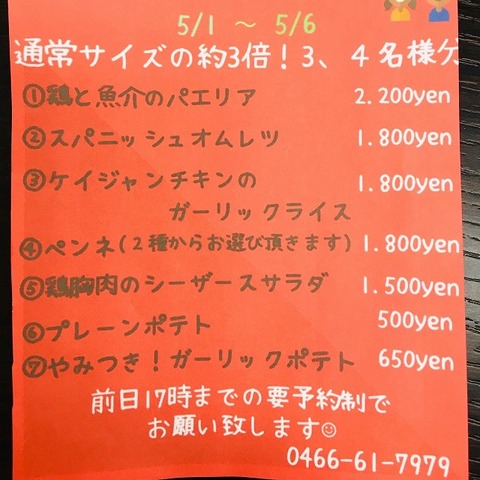 5/1 ～ 5/6
通常サイズの約3倍！3、４名様分
①鶏と魚介のパエリア 2.200yen
②スパニッシュオムレツ 1.800yen
③ケイジャンチキンの 1.800yen
ガーリックライス
④ペンネ(２種からお選び頂きます) 1.800yen
⑤鶏胸肉のシーザースサラダ 1.500yen
⑥プレーンポテト 500yen
⑦やみつき！ガーリックポテト 650yen
前日17時までの要予約制で
お願い致します☺
0466-61-7979